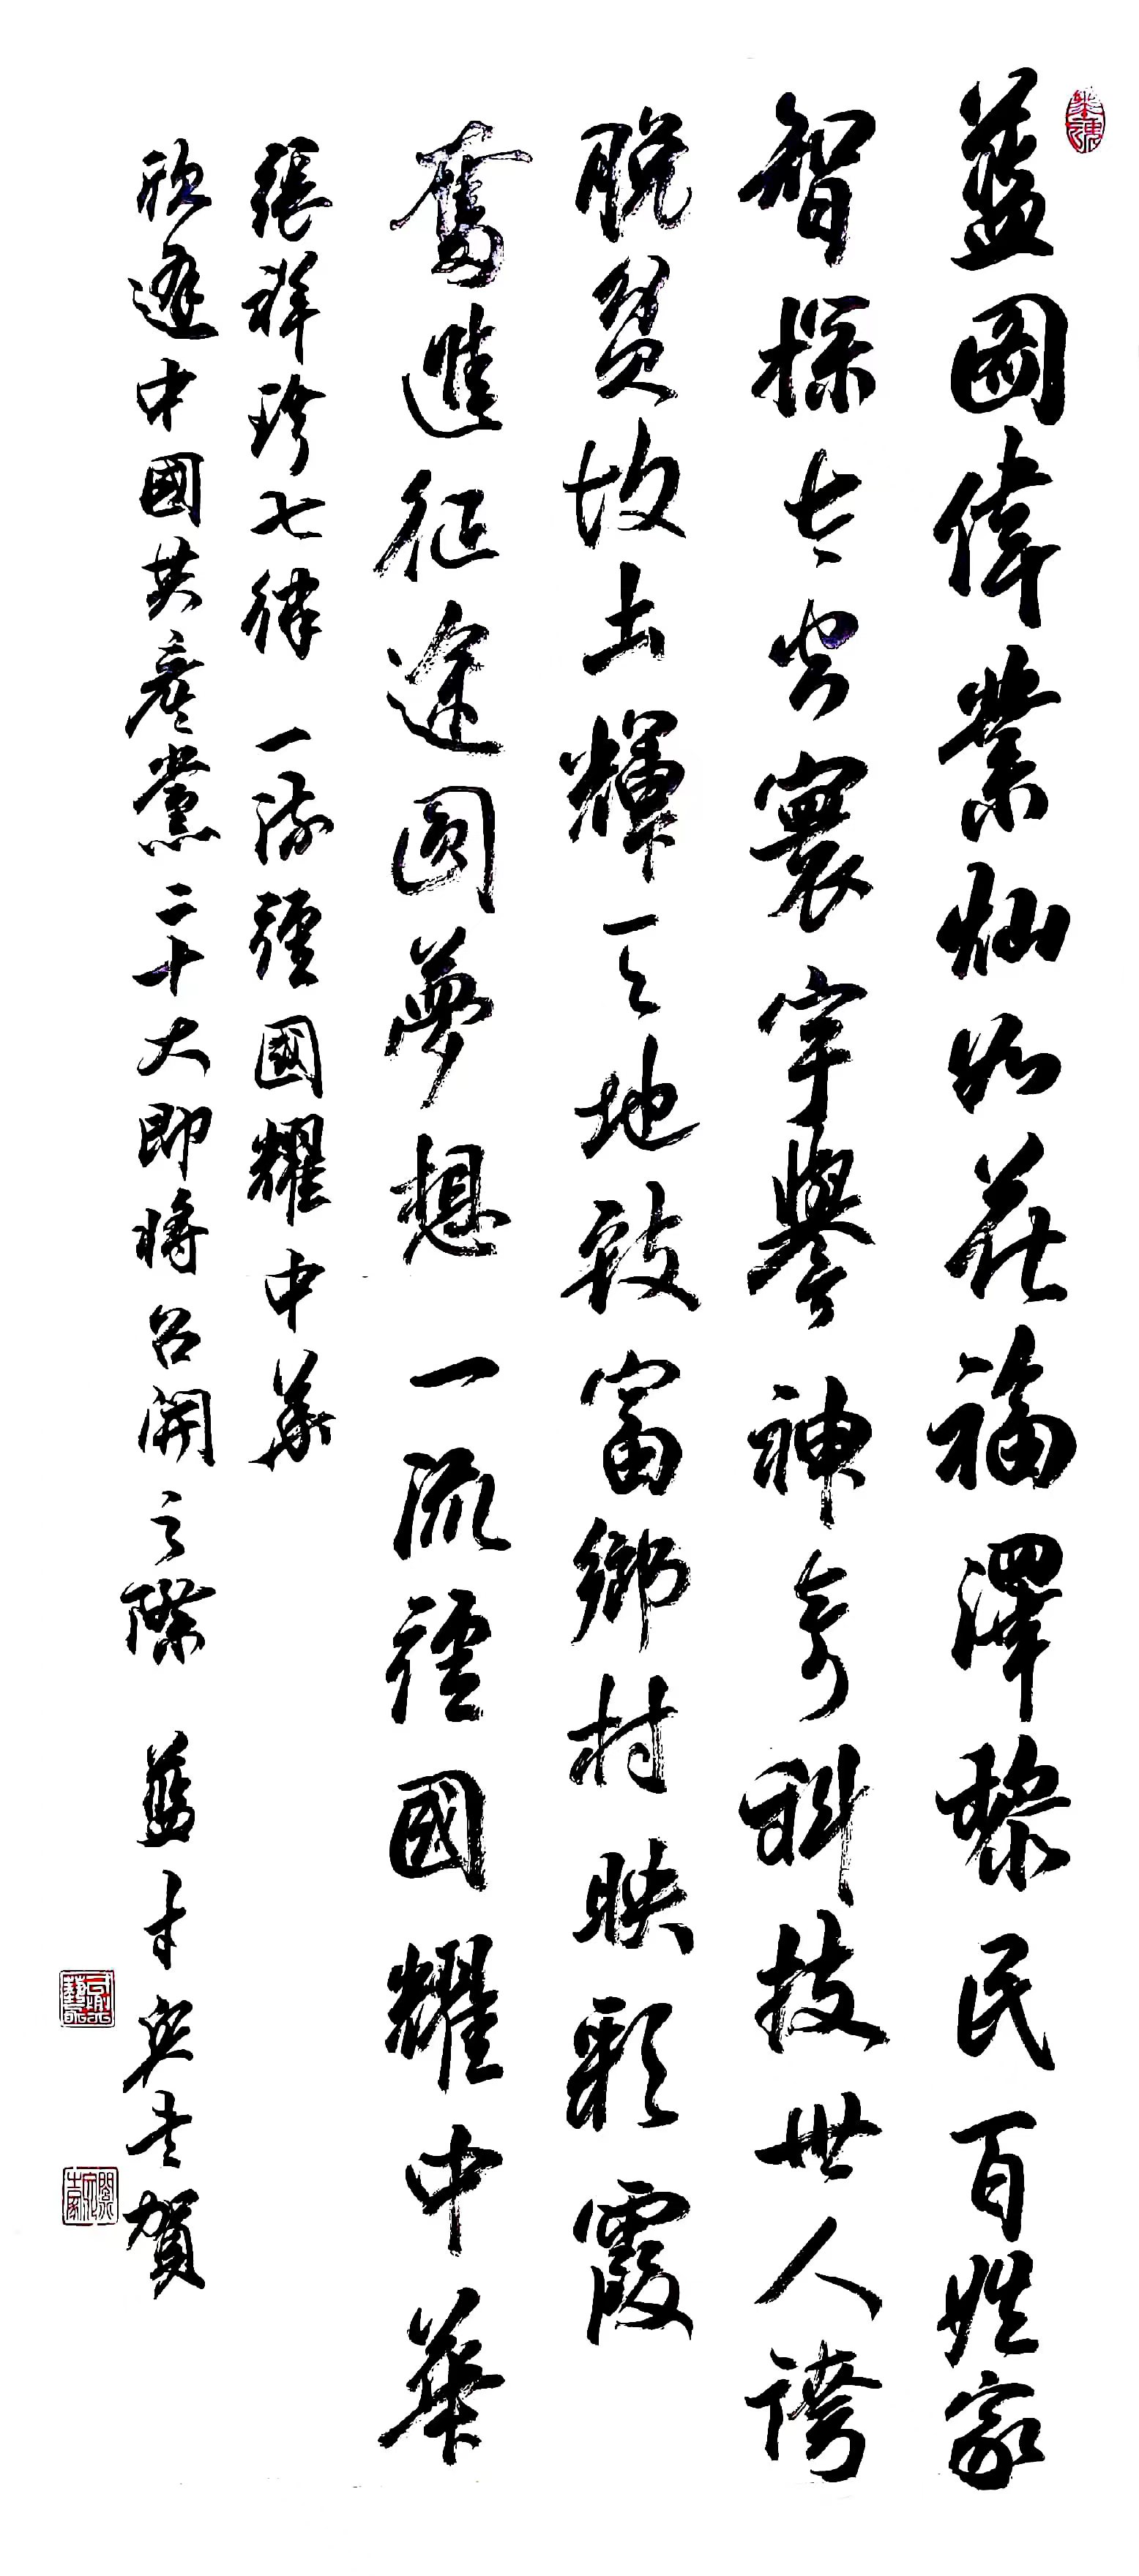 藍圖偉業灿如花福澤黎民百姓家
智探太空寰宇譽神奇科技世人誇
脱貧故土輝天地致富鄉村映彩霞
奮進征途圓夢想一流强國耀中華
張祥珍七律一流强國耀中華
欣逢中國共産黨二十大即將召開之際 藍才宏书賀